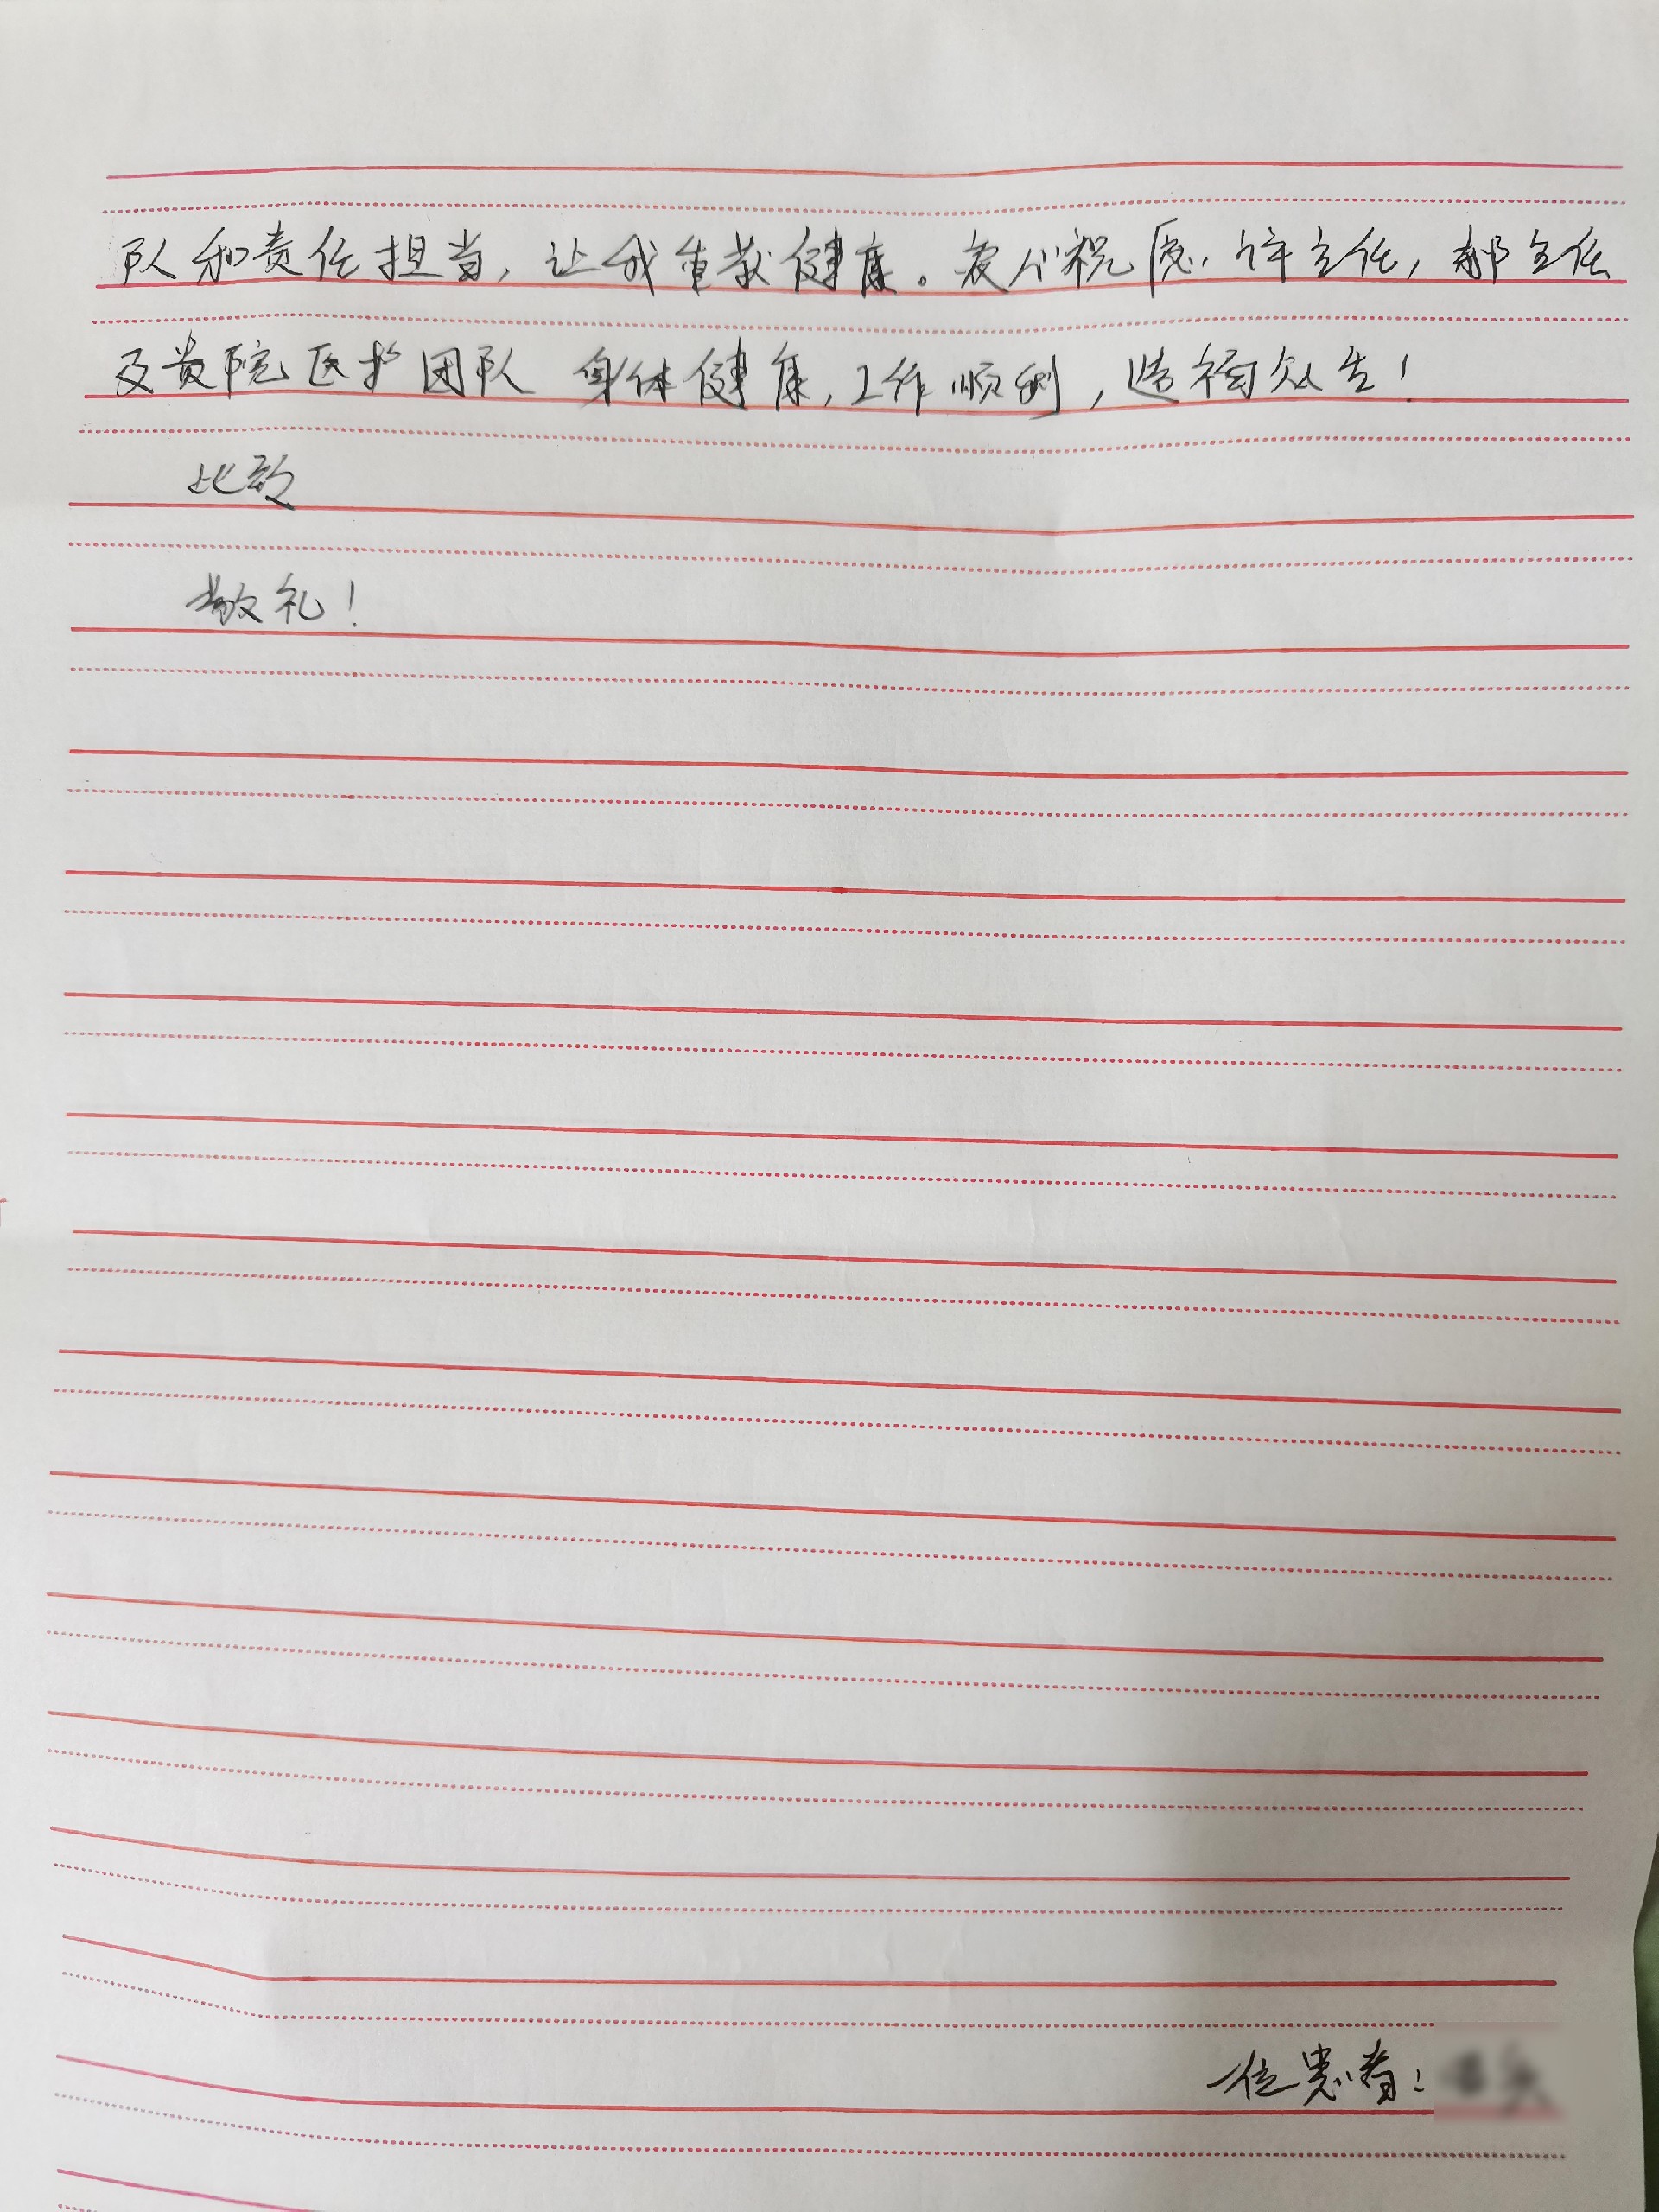 队和责任担当，让我重获健康。衷心祝愿，许主任，郝主任
及贵院医护团队 身体健康，工作顺利，造福众生！
此致
敬礼！
一位患者：